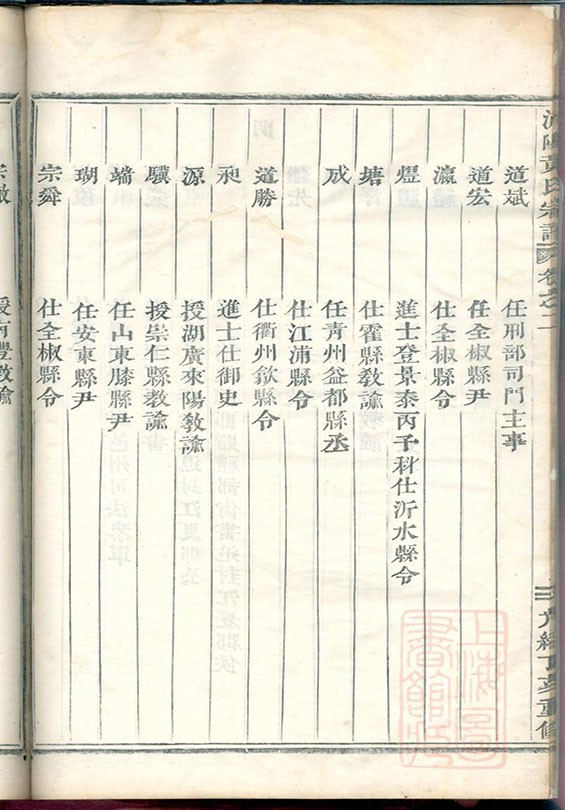 黃氏宗譜 卷之二
道斌 任刑部司門主事
道宏 任全椒縣尹
瀛 仕全椒縣令
爃 進士登景泰丙子科仕沂水縣令
塘 仕霍縣教諭
成 任青州益都縣丞
仕江浦縣令
道勝 仕衢州歙縣令
昶 進士仕御史
源 授湖廣來陽教諭
驥 授崇仁縣教諭
端 任山東滕縣尹
瑚 任安東縣尹
宗舜 仕全椒縣令
光緒丁亥重修
上海圖書館藏